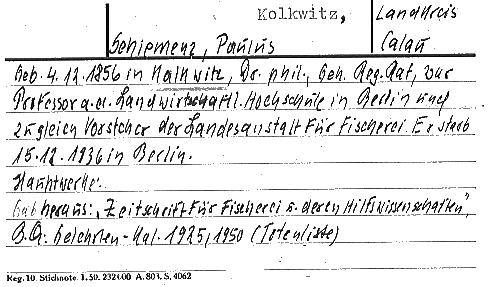 Kolkwitz,
Landkreis
Calau
Schiemenz, Paulus
Geb. 4.12.1856 in Kalkwitz, Dr. phil., Geh. Reg. Rat, war
Professor a. er. Landwirtschaftl. Hochschule in Berlin und
zugleich Vorsteher der Landesanstalt für Fischerei. Er starb
15.12.1936 in Berlin.
Hauptwerke:
Gab heraus: „Zeitschrift für Fischerei u. deren Hilfswissenschaften",
B.Q: Gelehrten-Kal. 1925, 1950 (Totenliste)
Reg. 10. Stichnote. 1. 50. 232400 A. 803. S. 4062